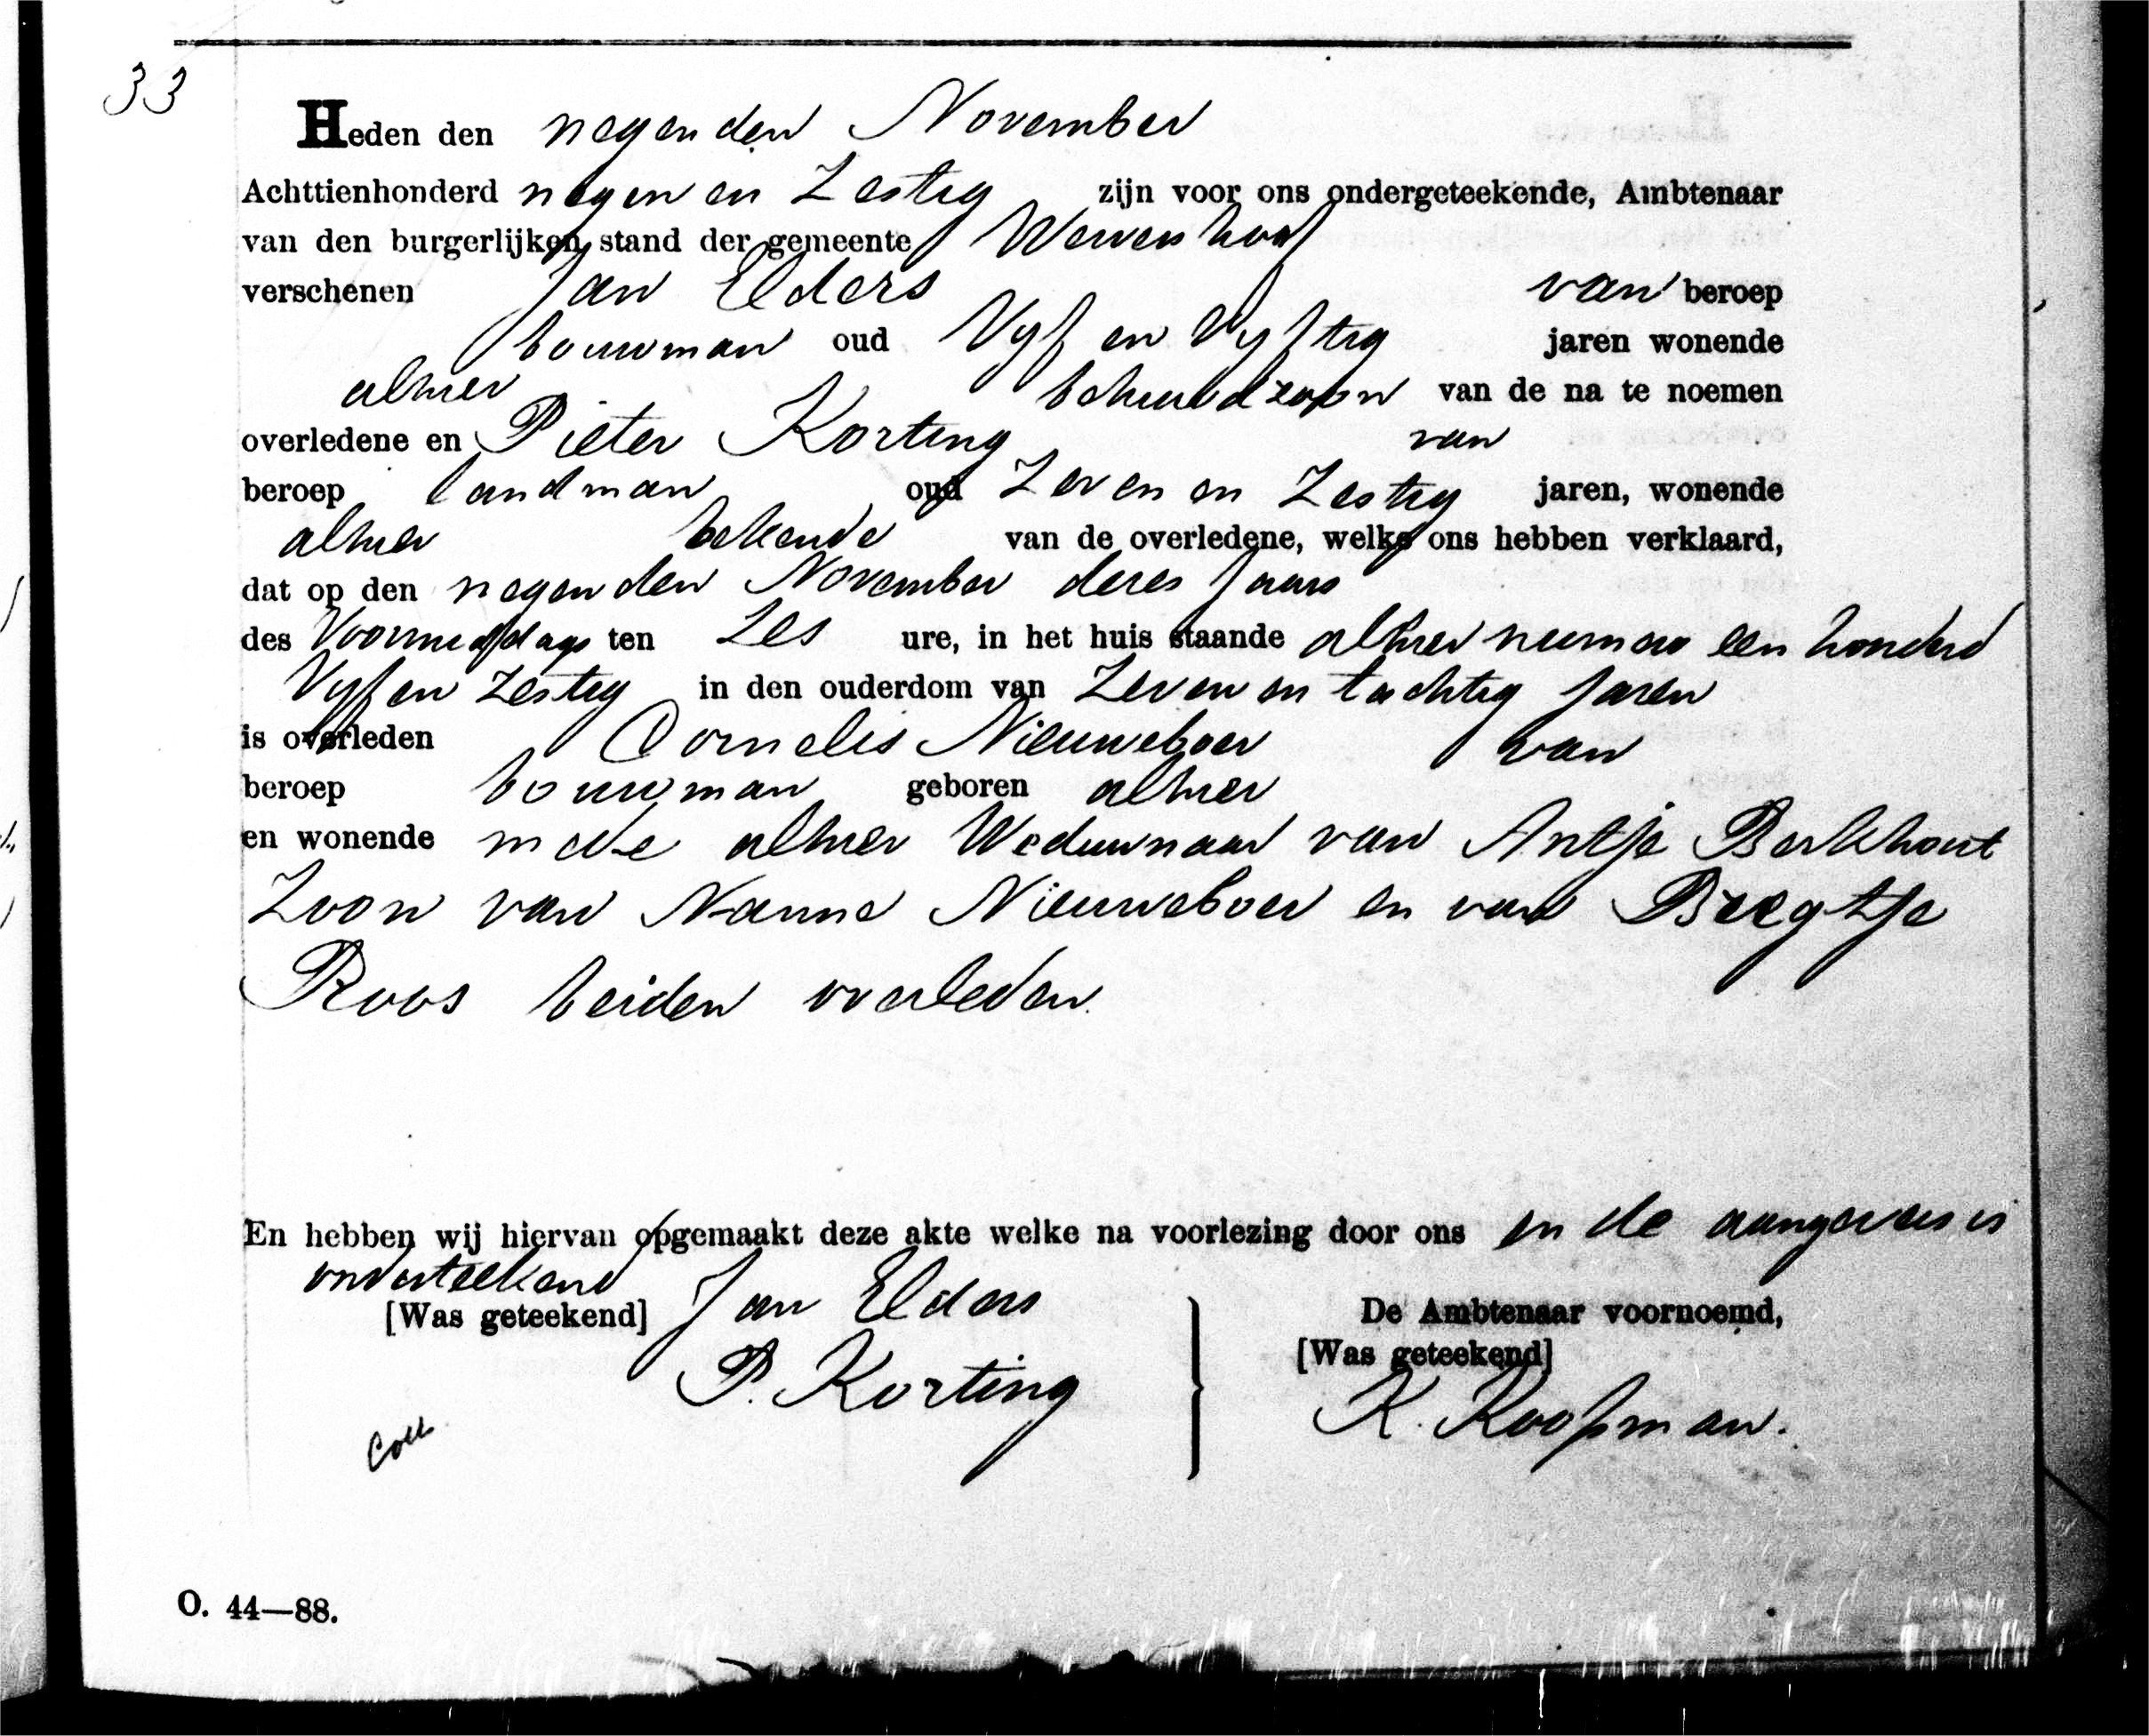 33
Heden den negenden November
Achttienhonderd negen en Zestig zijn voor ons ondergeteekende, Ambtenaar
van den burgerlijken stand der gemeente Wervershoof
verschenen Jan Elders van beroep
bouwman oud Vyf en Vyftig jaren wonende
alhier behuwdzoon van de na te noemen
overledene en Pieter Korting van
beroep landman oud Zeven en Zestig jaren, wonende
alhier bekende van de overledene, welke ons hebben verklaard,
dat op den negenden November dezes Jaars
des Voormiddags ten Zes ure, in het huis staande alhier nummer een honderd
Vyf en Zestig in den ouderdom van Zeven en tachtig Jaren
is overleden Cornelis Nieuweboer van
beroep bouwman geboren alhier
en wonende mede alhier Weduwnaar van Antje Berkhout
Zoon van Nanne Nieuweboer en van Breegtje
Roos beiden overleden.
En hebben wij hiervan opgemaakt deze akte welke na voorlezing door ons en de aangevers is
onderteekend
[Was geteekend] Jan Elders De Ambtenaar voornoemd,
[Was geteekend]
P. Korting K. Koopman.
Coll
O. 44—88.